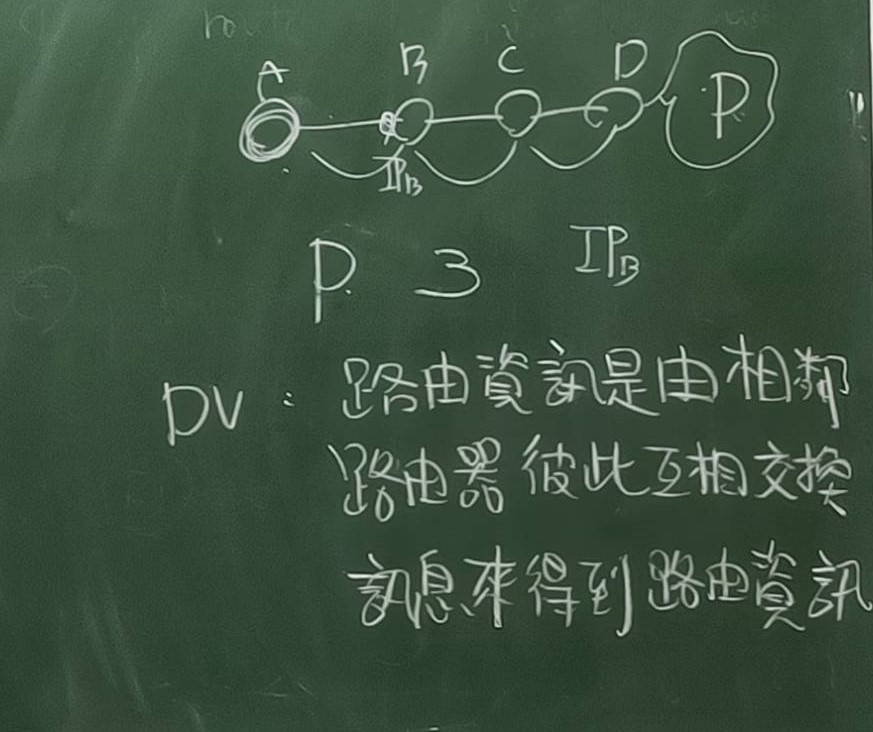 A B C D P
IPB
P 3 IPB
DV: 路由資訊是由相鄰
路由器彼此互相交換
訊息來得到路由資訊